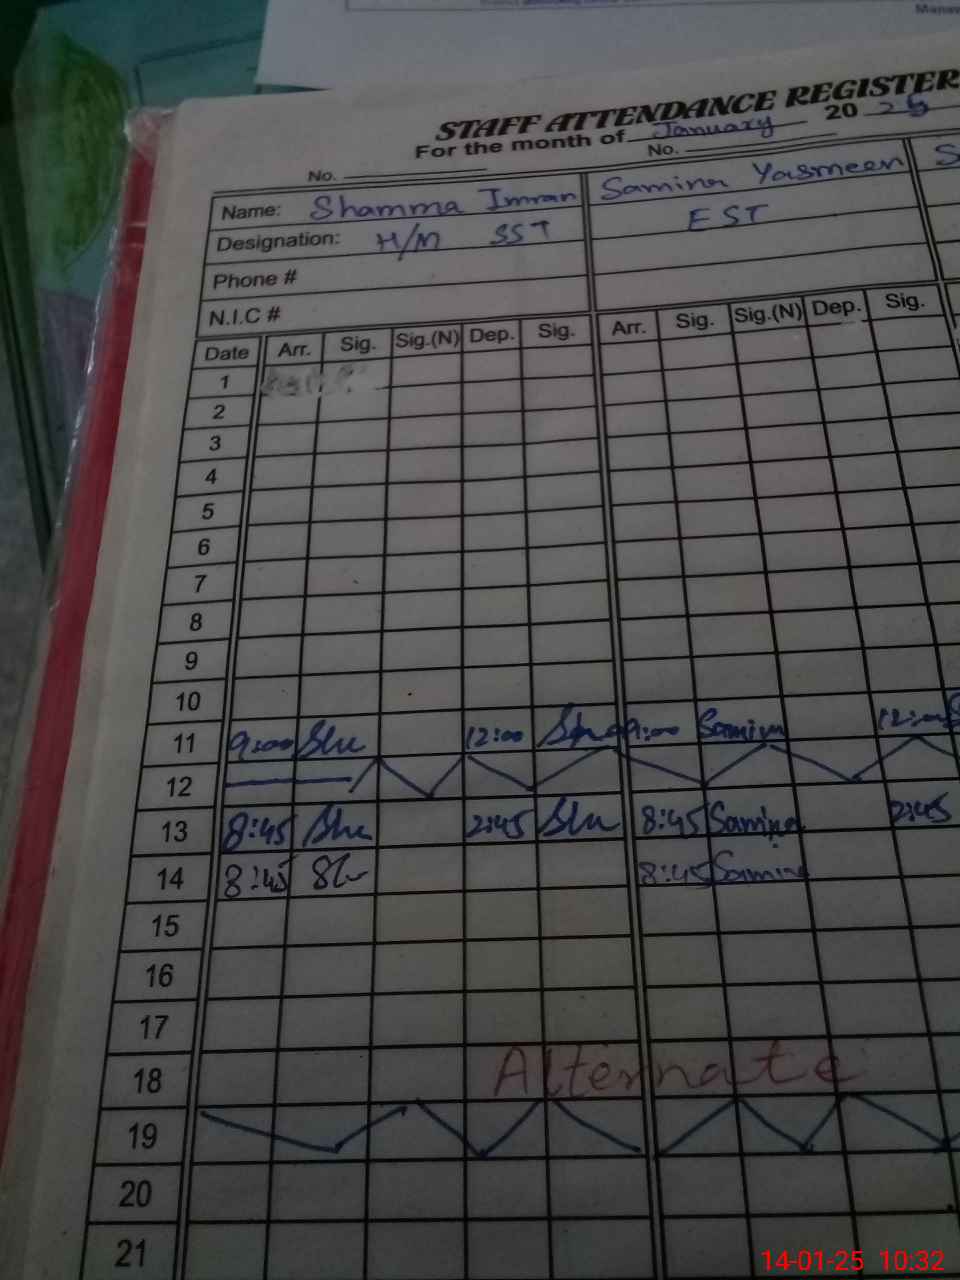 STAFF ATTENDANCE REGISTER
For the month of January 2025
No. No.
Name: Shamma Imran Samina Yasmeen S
Designation: H/M SST EST
Phone #
N.I.C #
Date Arr. Sig. Sig.(N) Dep. Sig. Arr. Sig. Sig.(N) Dep. Sig.
1
2
3
4
5
6
7
8
9
10
11 9:00 12:00 9:00 Samina 12:00
12
13 8:45 2:45 8:45 Samina 2:45
14 8:45 8:45 Samina
15
16
17
18 Alternate
19
20
21
14-01-25 10:32